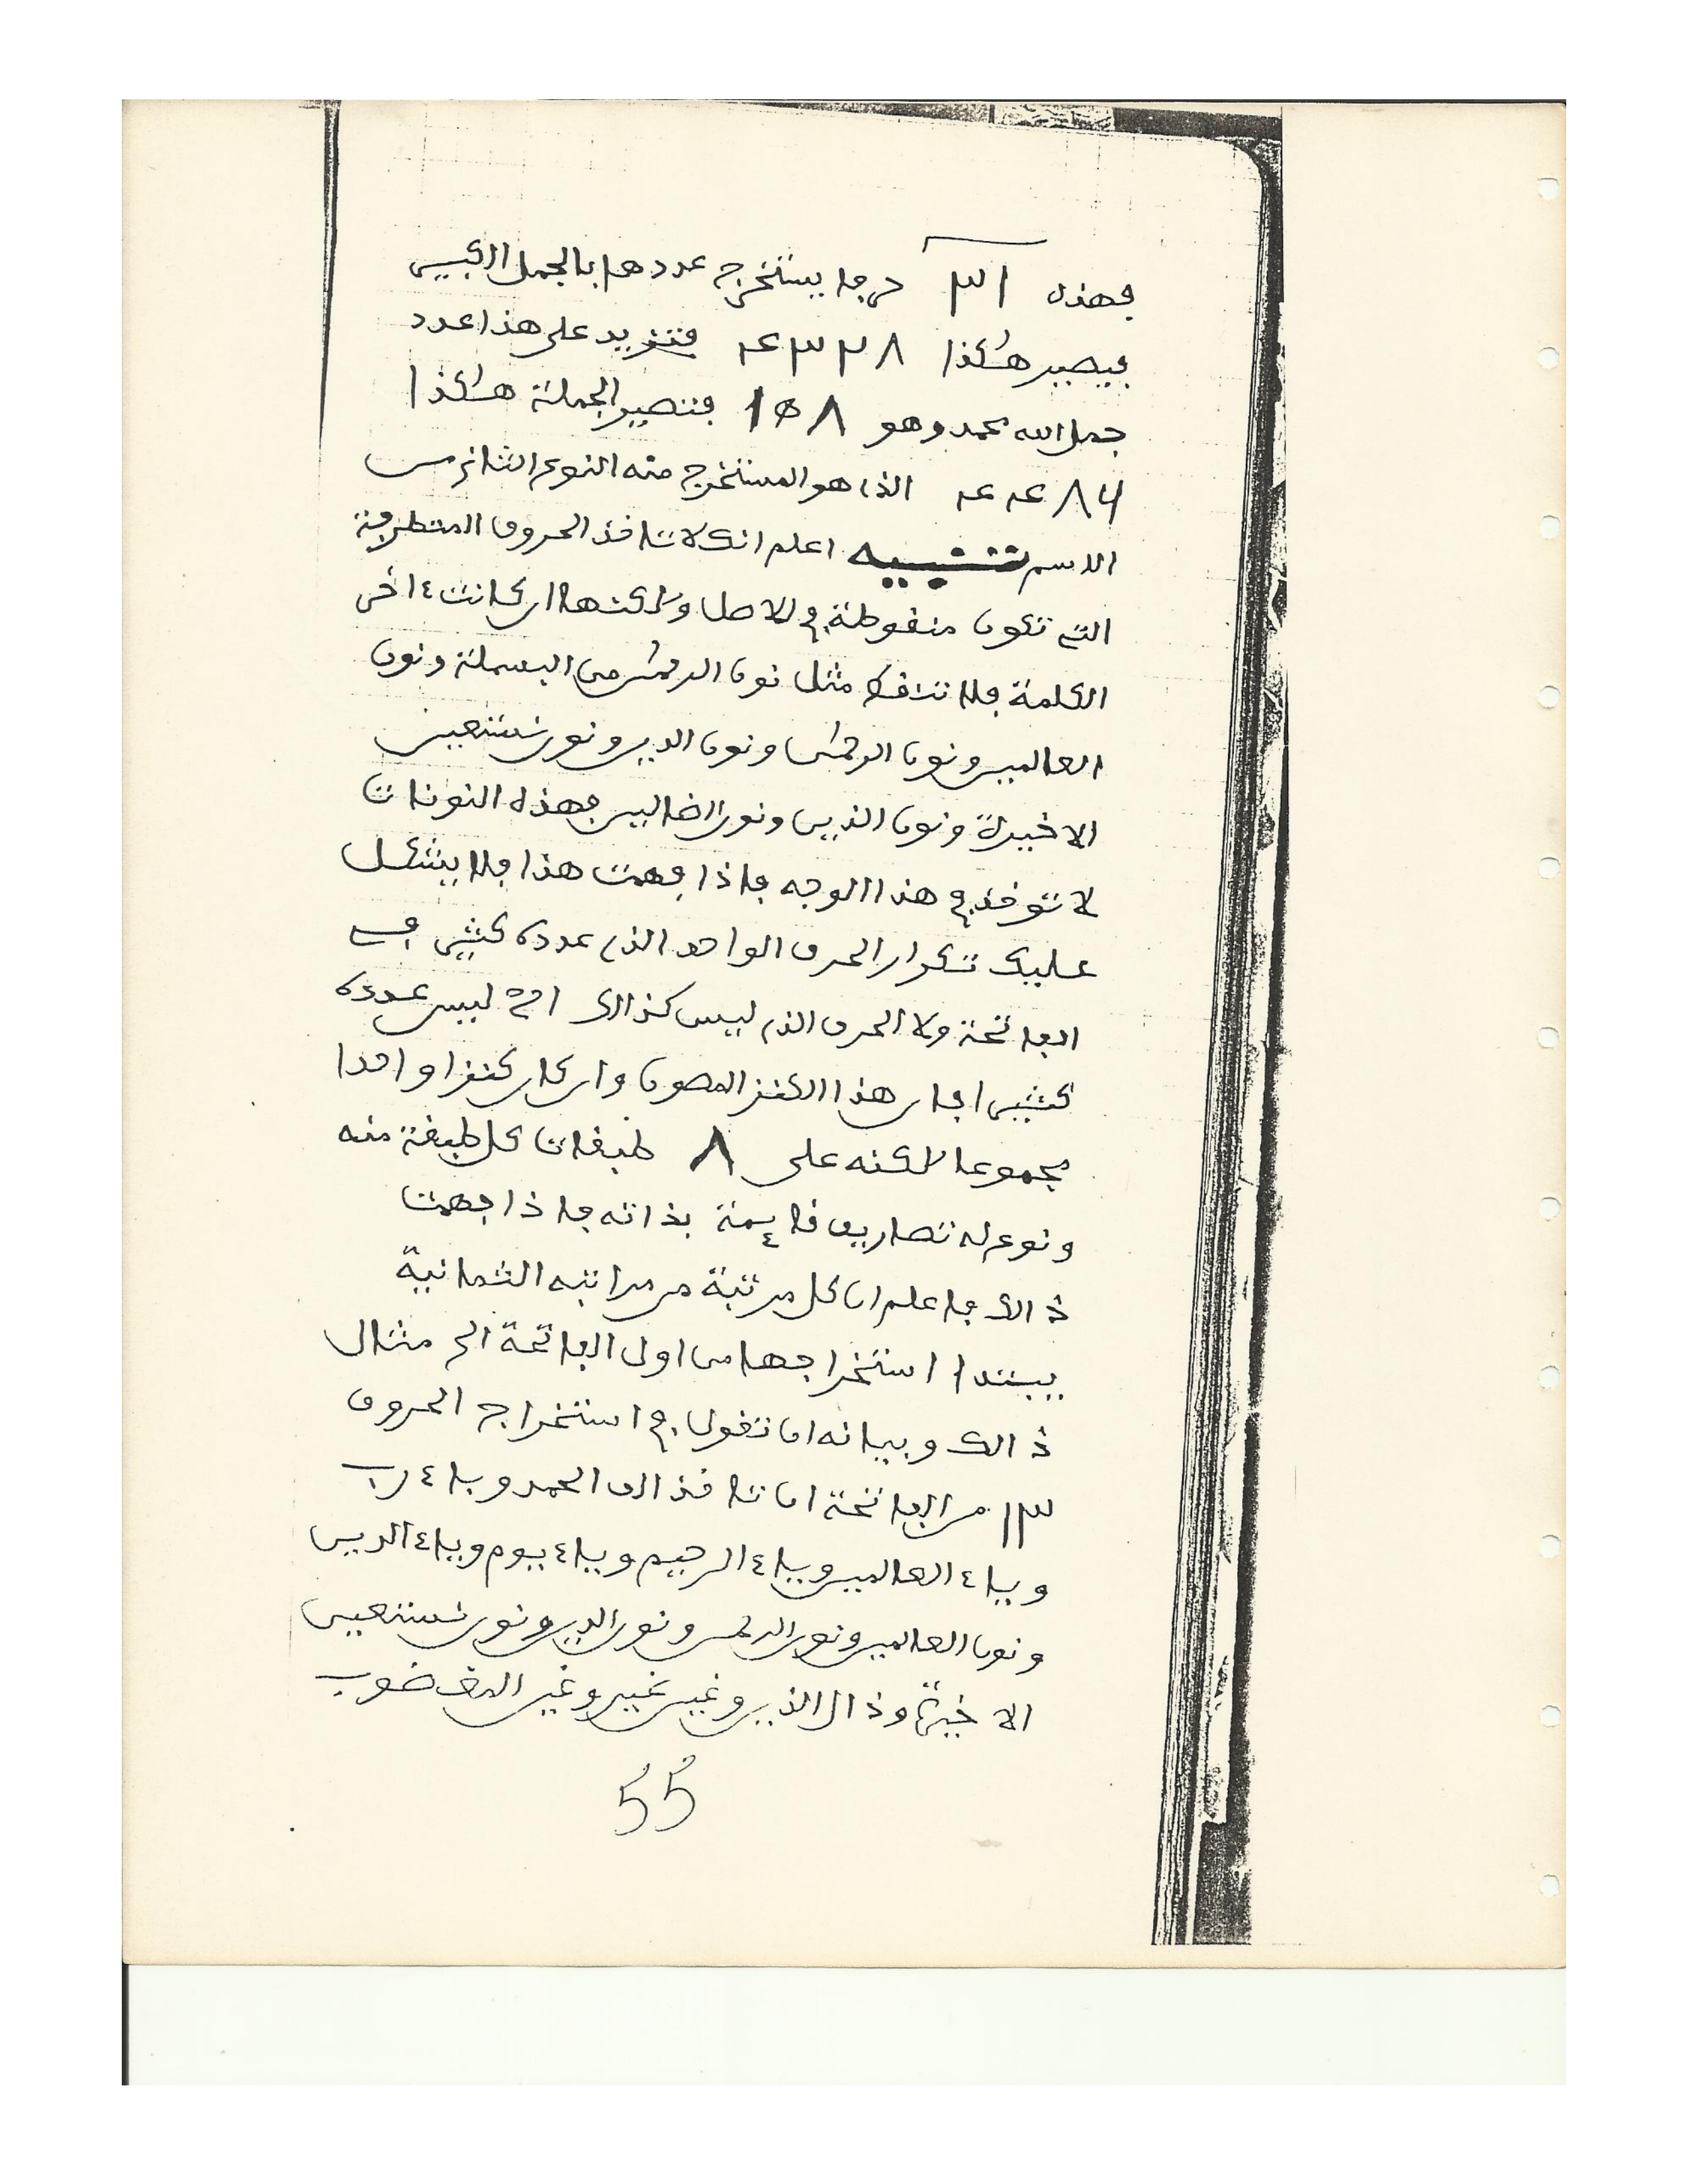 فهذه ١٣ حرفا يستخرج عددها بالجمل الكبير
فيصير هكذا ٤٣٢٨ فتزيد على هذا عدد
جمل الله محمد وهو ١٥٨ فتصير الجملة هكذا
٤٤٨٦ الذي هو المستخرج منه النوع الثاني من
الاسم تنبيه اعلم انك لا تاخذ الحروف المتطرفة
التي تكون منقوطة في الاصل ولكنها ان كانت ءاخر
الكلمة فلا تنقط مثل نون الرحمن من البسملة ونون
العالمين ونون الرحمن ونون الدين ونون نستعين
الاخيرة ونون الذين ونون الضالين فهذه النونات
لا توخذ في هذا الوجه فاذا فهمت هذا فلا يشكل
عليك تكرار الحرف الواحد الذي عدده كثير في
الفاتحة ولا الحرف الذي ليس كذالك اي ليس عدده
كثيرا فان هذا الكنز المصون وان كان كنزا واحدا
مجموعا لكنه على ٨ طبقات كل طبقة منه
ونوع له تصاريف قايمة بذاته فاذا فهمت
ذالك فاعلم ان كل مرتبة من مراتبه الثمانية
يبتدا استخراجها من اول الفاتحة الى مثال
ذالك وبيانه ان تقول في استخراج الحروف
١٣ من الفاتحة ان تاخذ الف الحمد وباء رب
وياء العالمين وياء الرحيم وياء يوم وياء الدين
ونون العالمين ونون الرحمن ونون الدين ونون نستعين
الاخيرة وذال الذين وغين غير وغين المغضوب
55